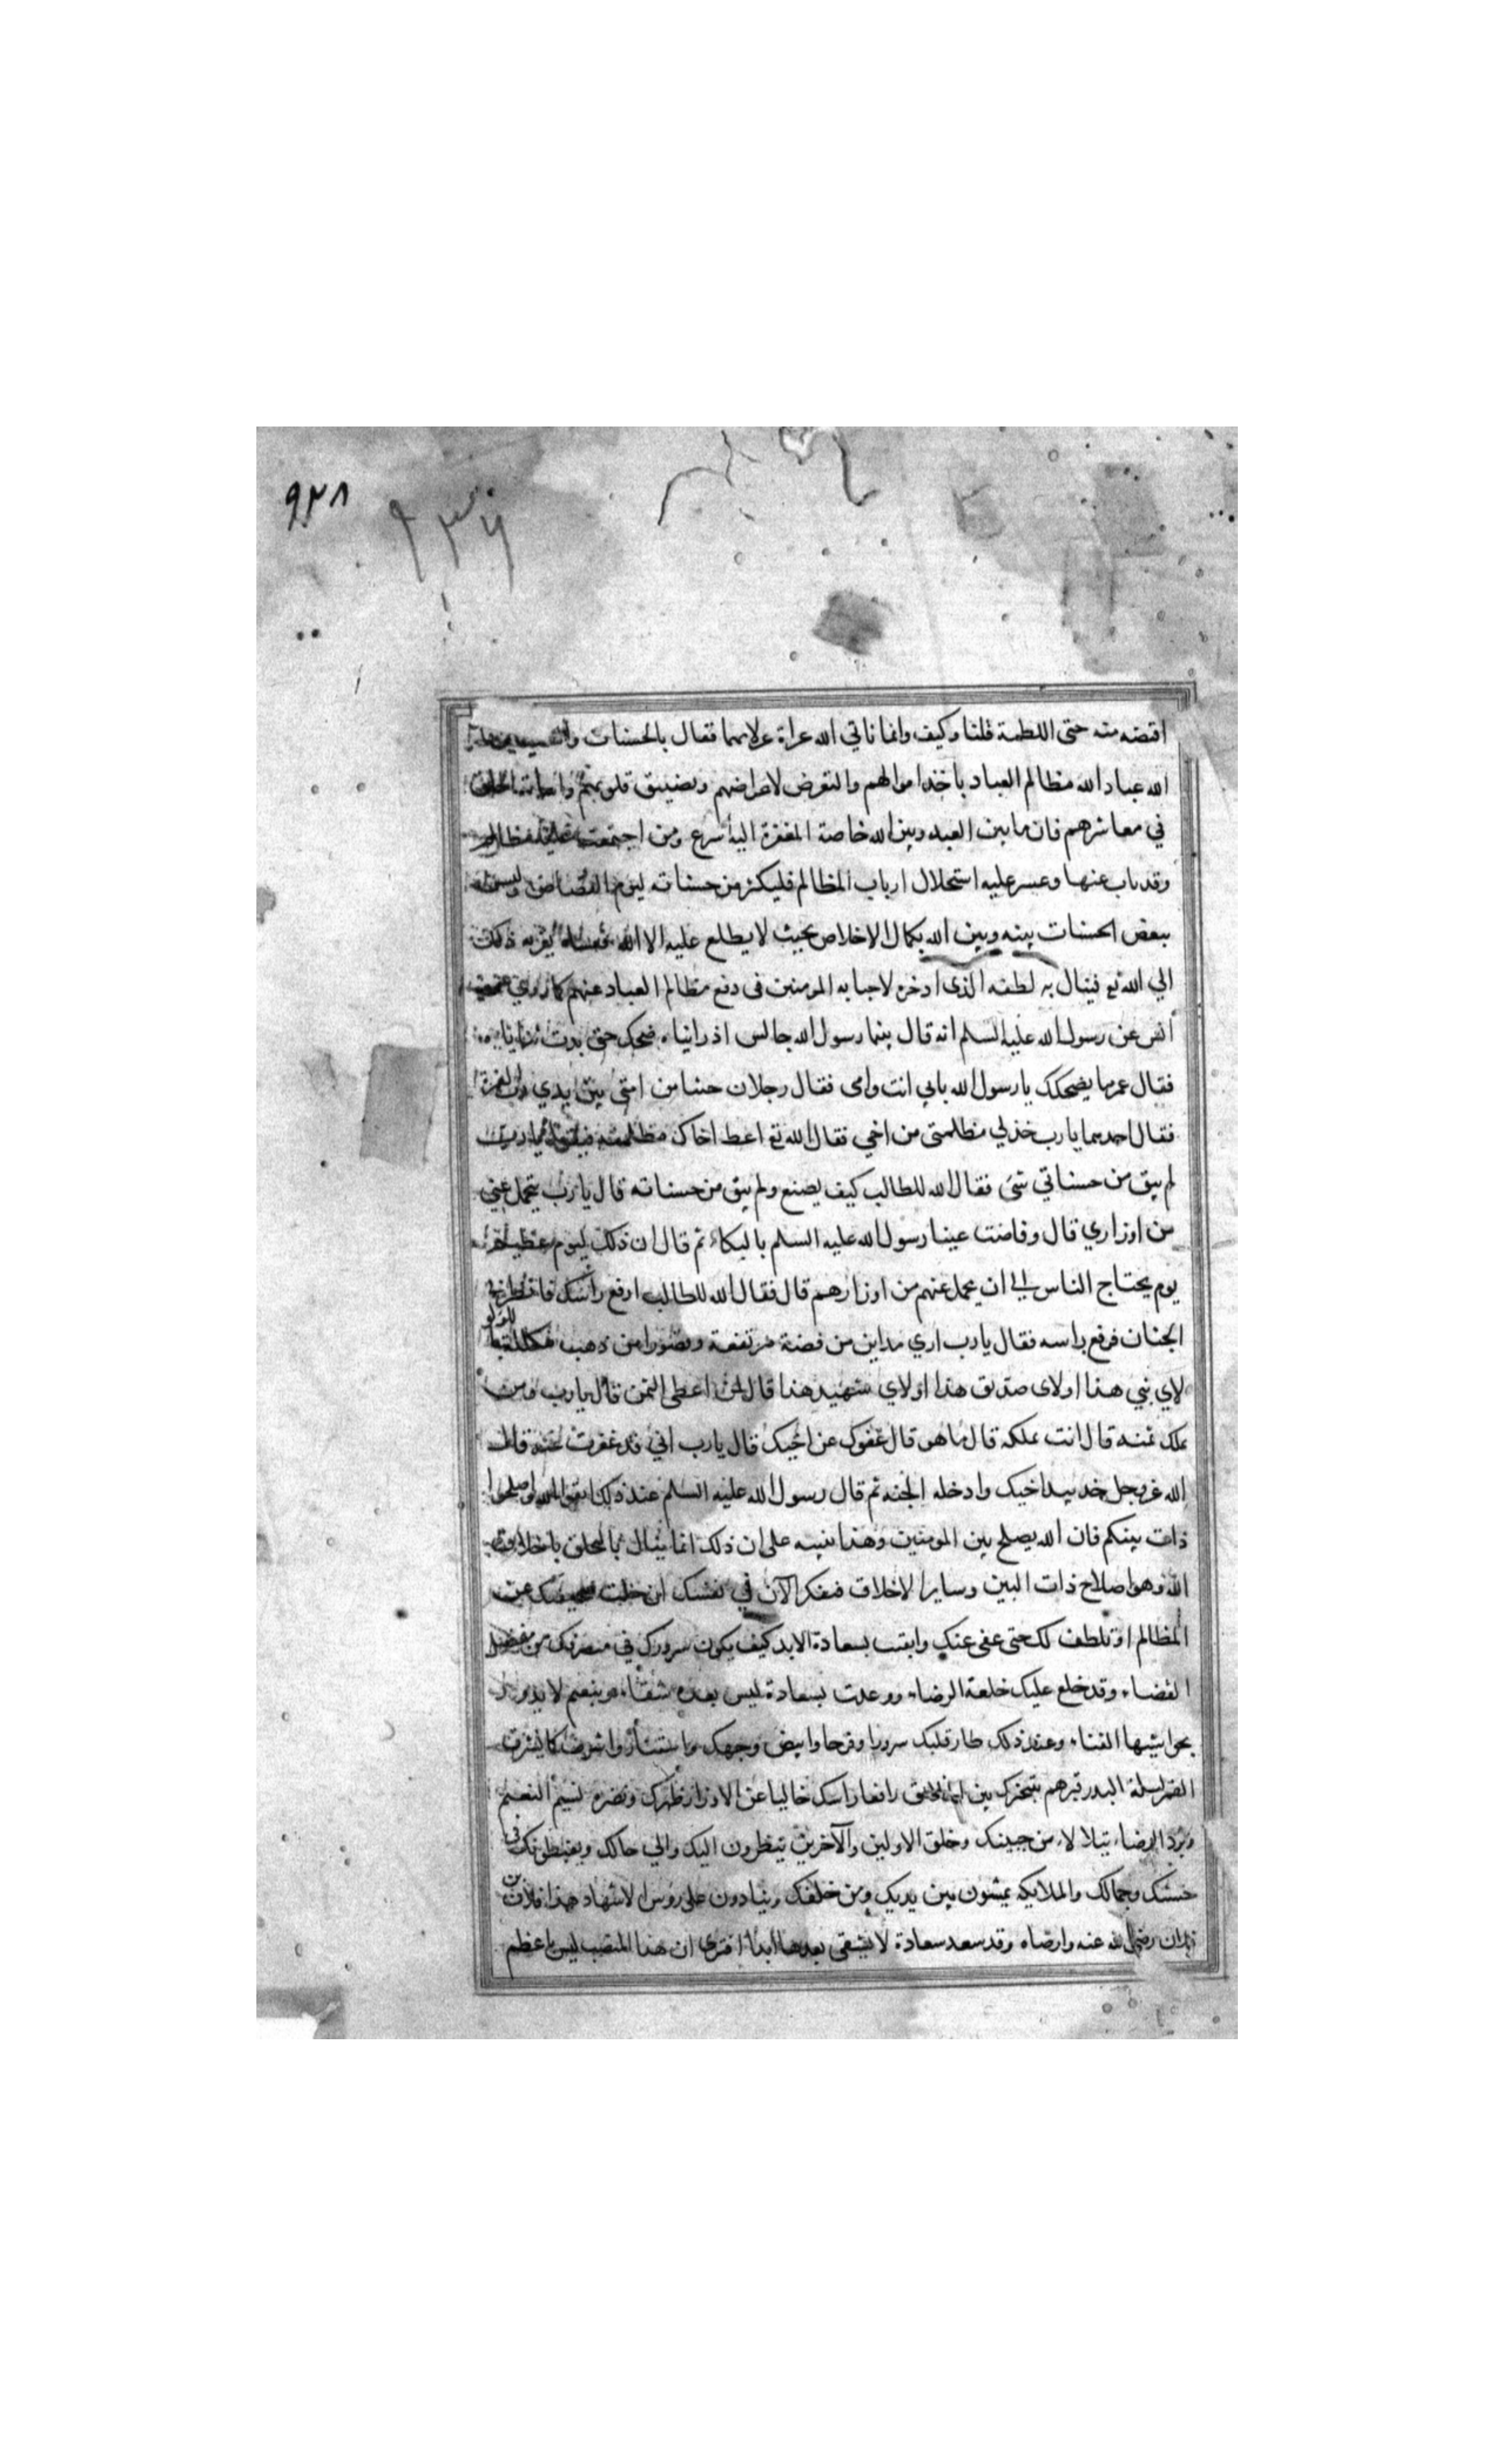 ٩٢٨
٩٣٦
اقتصه منه حتى اللطمة قلنا وكيف وانما ناتي الله عراة غرلا بهما فقال بالحسنات
الله عباد الله مظالم العباد باخذ اموالهم والتعرض لاعراضهم وتضييق قلوبهم
في معاشرهم فان ما بين العبد وبين الله خاصة المغفرة اليه اسرع ومن اجتمعت عليه مظالم
وقد تاب عنها وعسر عليه استحلال ارباب المظالم فليكثر من حسناته ليوم القصاص
ببعض الحسنات بينه وبين الله بكمال الاخلاص بحيث لا يطلع عليه الا الله فعساه يقربه ذلك
الي الله تع فينال به لطفه الذى ادخره لاحبابه المومنين فى دفع مظالم العباد عنهم كما روي
انس عن رسول الله عليه السلم انه قال بينما رسول الله جالس اذ رايناه ضحك حتى بدت ثناياه
فقال عمر ما يضحكك يا رسول الله بابي انت وامى فقال رجلان جثيا من امتى بين يدي رب العزة
فقال احدهما يا رب خذ لي مظلمتى من اخي فقال الله تع اعط اخاك مظلمته فيقول يا رب
لم يبق من حسناتي شى فقال الله للطالب كيف يصنع ولم يبق من حسناته قال يا رب يتحمل عني
من اوزاري قال وفاضت عينا رسول الله عليه السلم بالبكاء ثم قال ان ذلك ليوم عظيم
يوم يحتاج الناس الي ان يحمل عنهم من اوزارهم قال فقال الله للطالب ارفع راسك فانظر في
الجنان فرفع راسه فقال يا رب اري مداين من فضة مرتفعة وقصورا من ذهب مكللة باللولو
لاي نبي هذا او لاى صديق هذا او لاي شهيد هذا قال لمن اعطى الثمن قال يا رب ومن
يملك ثمنه قال انت تملكه قال ما هو قال عفوك عن اخيك قال يا رب اني قد غفرت عنه قال
الله عز وجل خذ بيد اخيك وادخله الجنه ثم قال رسول الله عليه السلم عند ذلك اتقوا الله واصلحوا
ذات بينكم فان الله يصلح بين المومنين وهذا تنبيه على ان ذلك انما ينال بالتخلق باخلاق
الله وهو اصلاح ذات البين وساير الاخلاق فتفكر الآن في نفسك ان خلت صحيفتك عن
المظالم او تلطف لك حتى عفى عنك وايقنت بسعادة الابد كيف يكون سرورك في منصرفك من مفصل
القضاء وقد خلع عليك خلعة الرضاء ووعدت بسعادة ليس بعده شقاء وبنعيم لا يدور
بحواشيها الفناء وعند ذلك طار قلبك سرورا وفرحا وابيض وجهك واستنار واشرق كما يشرق
القمر ليلة البدر فتوهم تبخترك بين الخلايق رافعا راسك خاليا عن الاوزار ظهرك ونضرة نسيم النعيم
وبرد الرضاء يتلالاء من جبينك وخلق الاولين والآخرين ينظرون اليك والي حالك ويغبطونك في
حسنك وجمالك والملايكه يمشون بين يديك ومن خلفك وينادون على روس الاشهاد هذا فلان بن
فلان رضى الله عنه وارضاه وقد سعد سعادة لا يشقى بعدها ابدا افترى ان هذا المنصب ليس باعظم